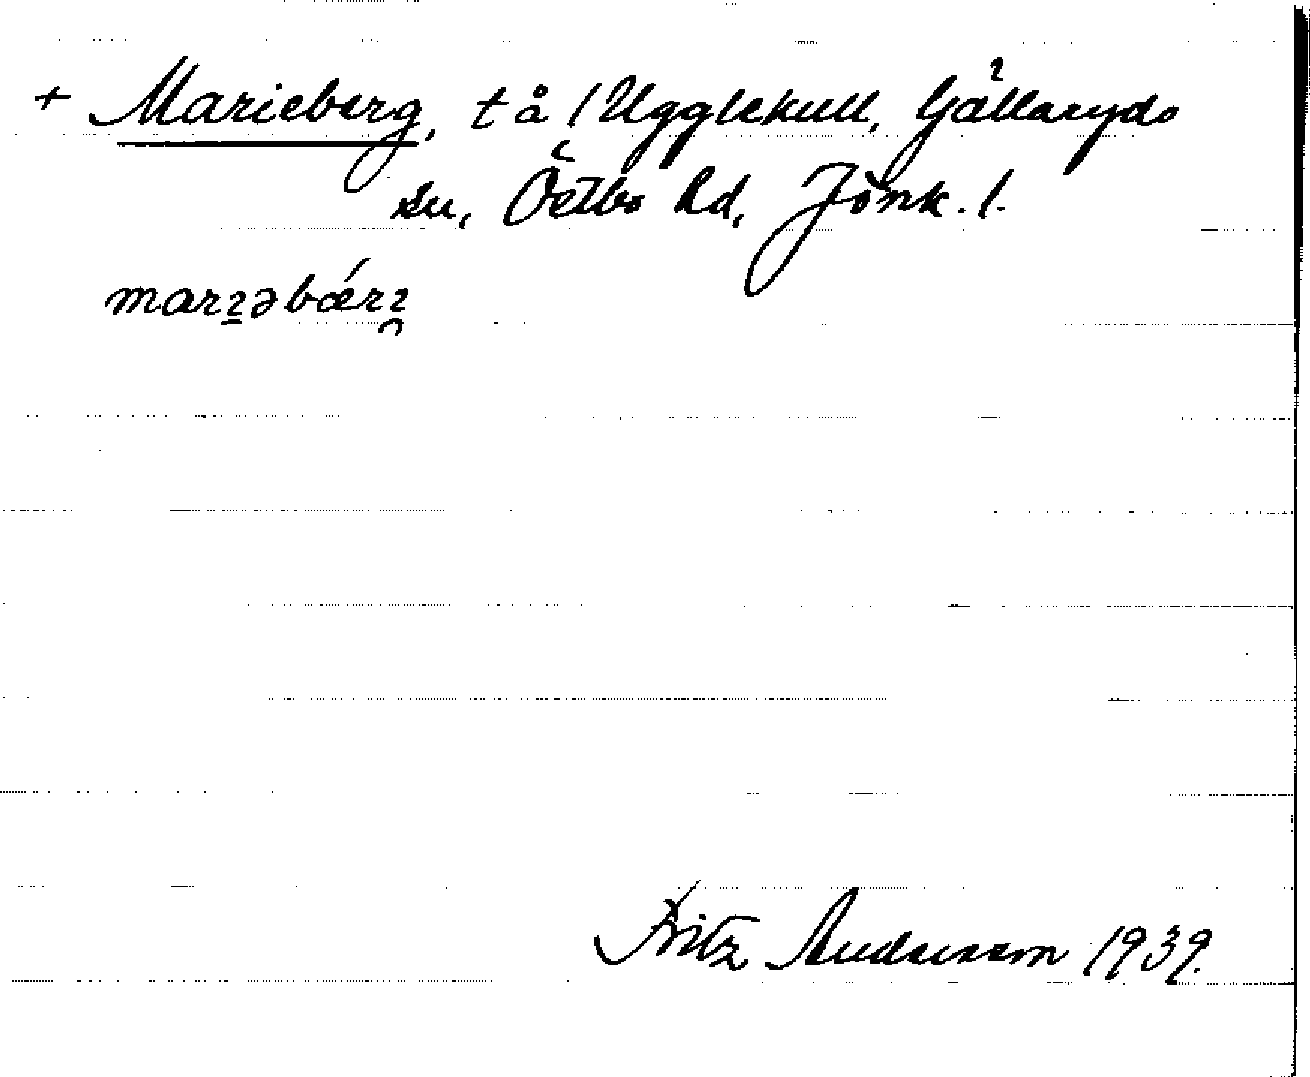 + Marieberg, t å / Ugglekull, Gällaryds
sn, Östbo hd, Jönk. l.
Fritz Andersson 1939.